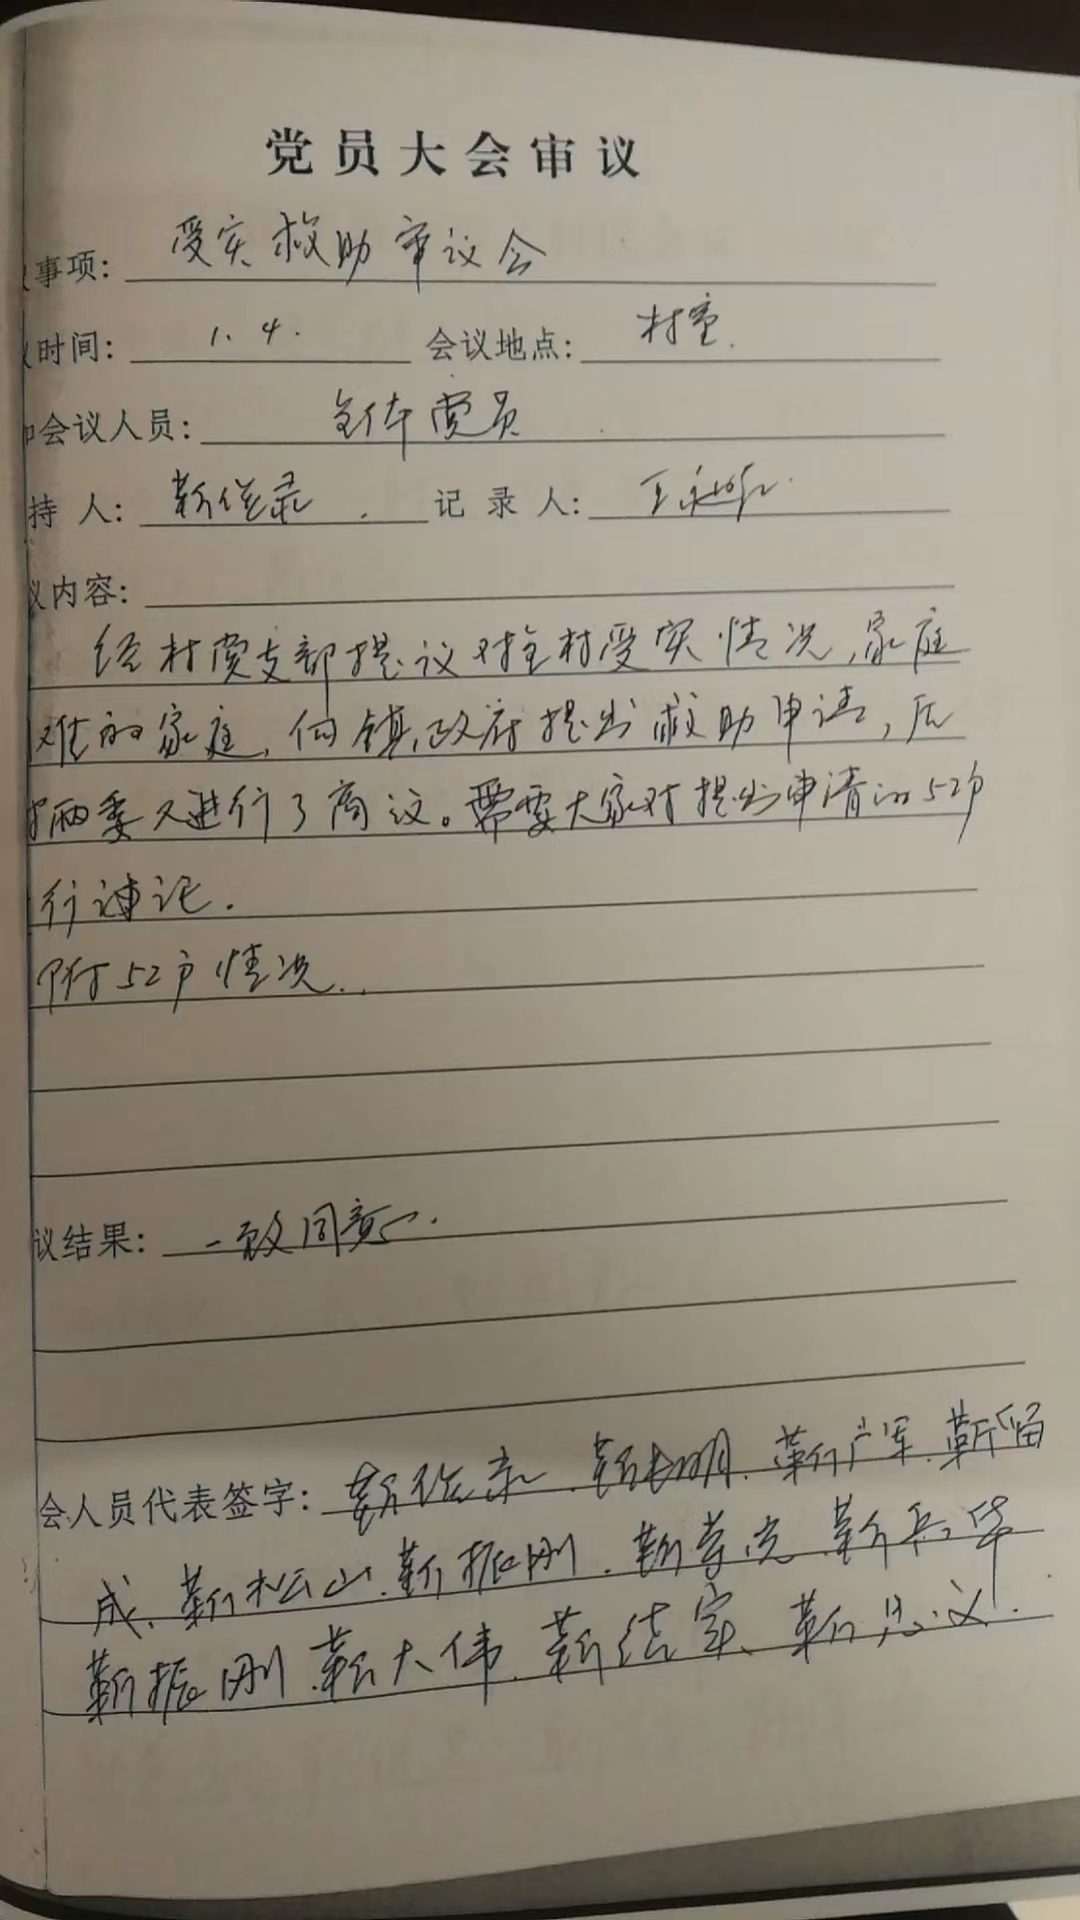 党员大会审议
事项： 受灾救助审议会
时间： 1.4. 会议地点： 村室.
会议人员： 全体党员
持 人： 靳 记 录 人： 王
议内容：
经村党支部提议对全村受灾情况，家庭
难的家庭，向镇政府提出救助申请，后
两委又进行了商议。需要大家对提出申请的52户
行
附52户情况..
议结果： 一致同意.
会人员代表签字： 靳 靳明、靳广军、靳留
成、靳松山、靳振刚、靳党、靳兵华
靳振刚、靳大伟、靳结实、靳忠义.